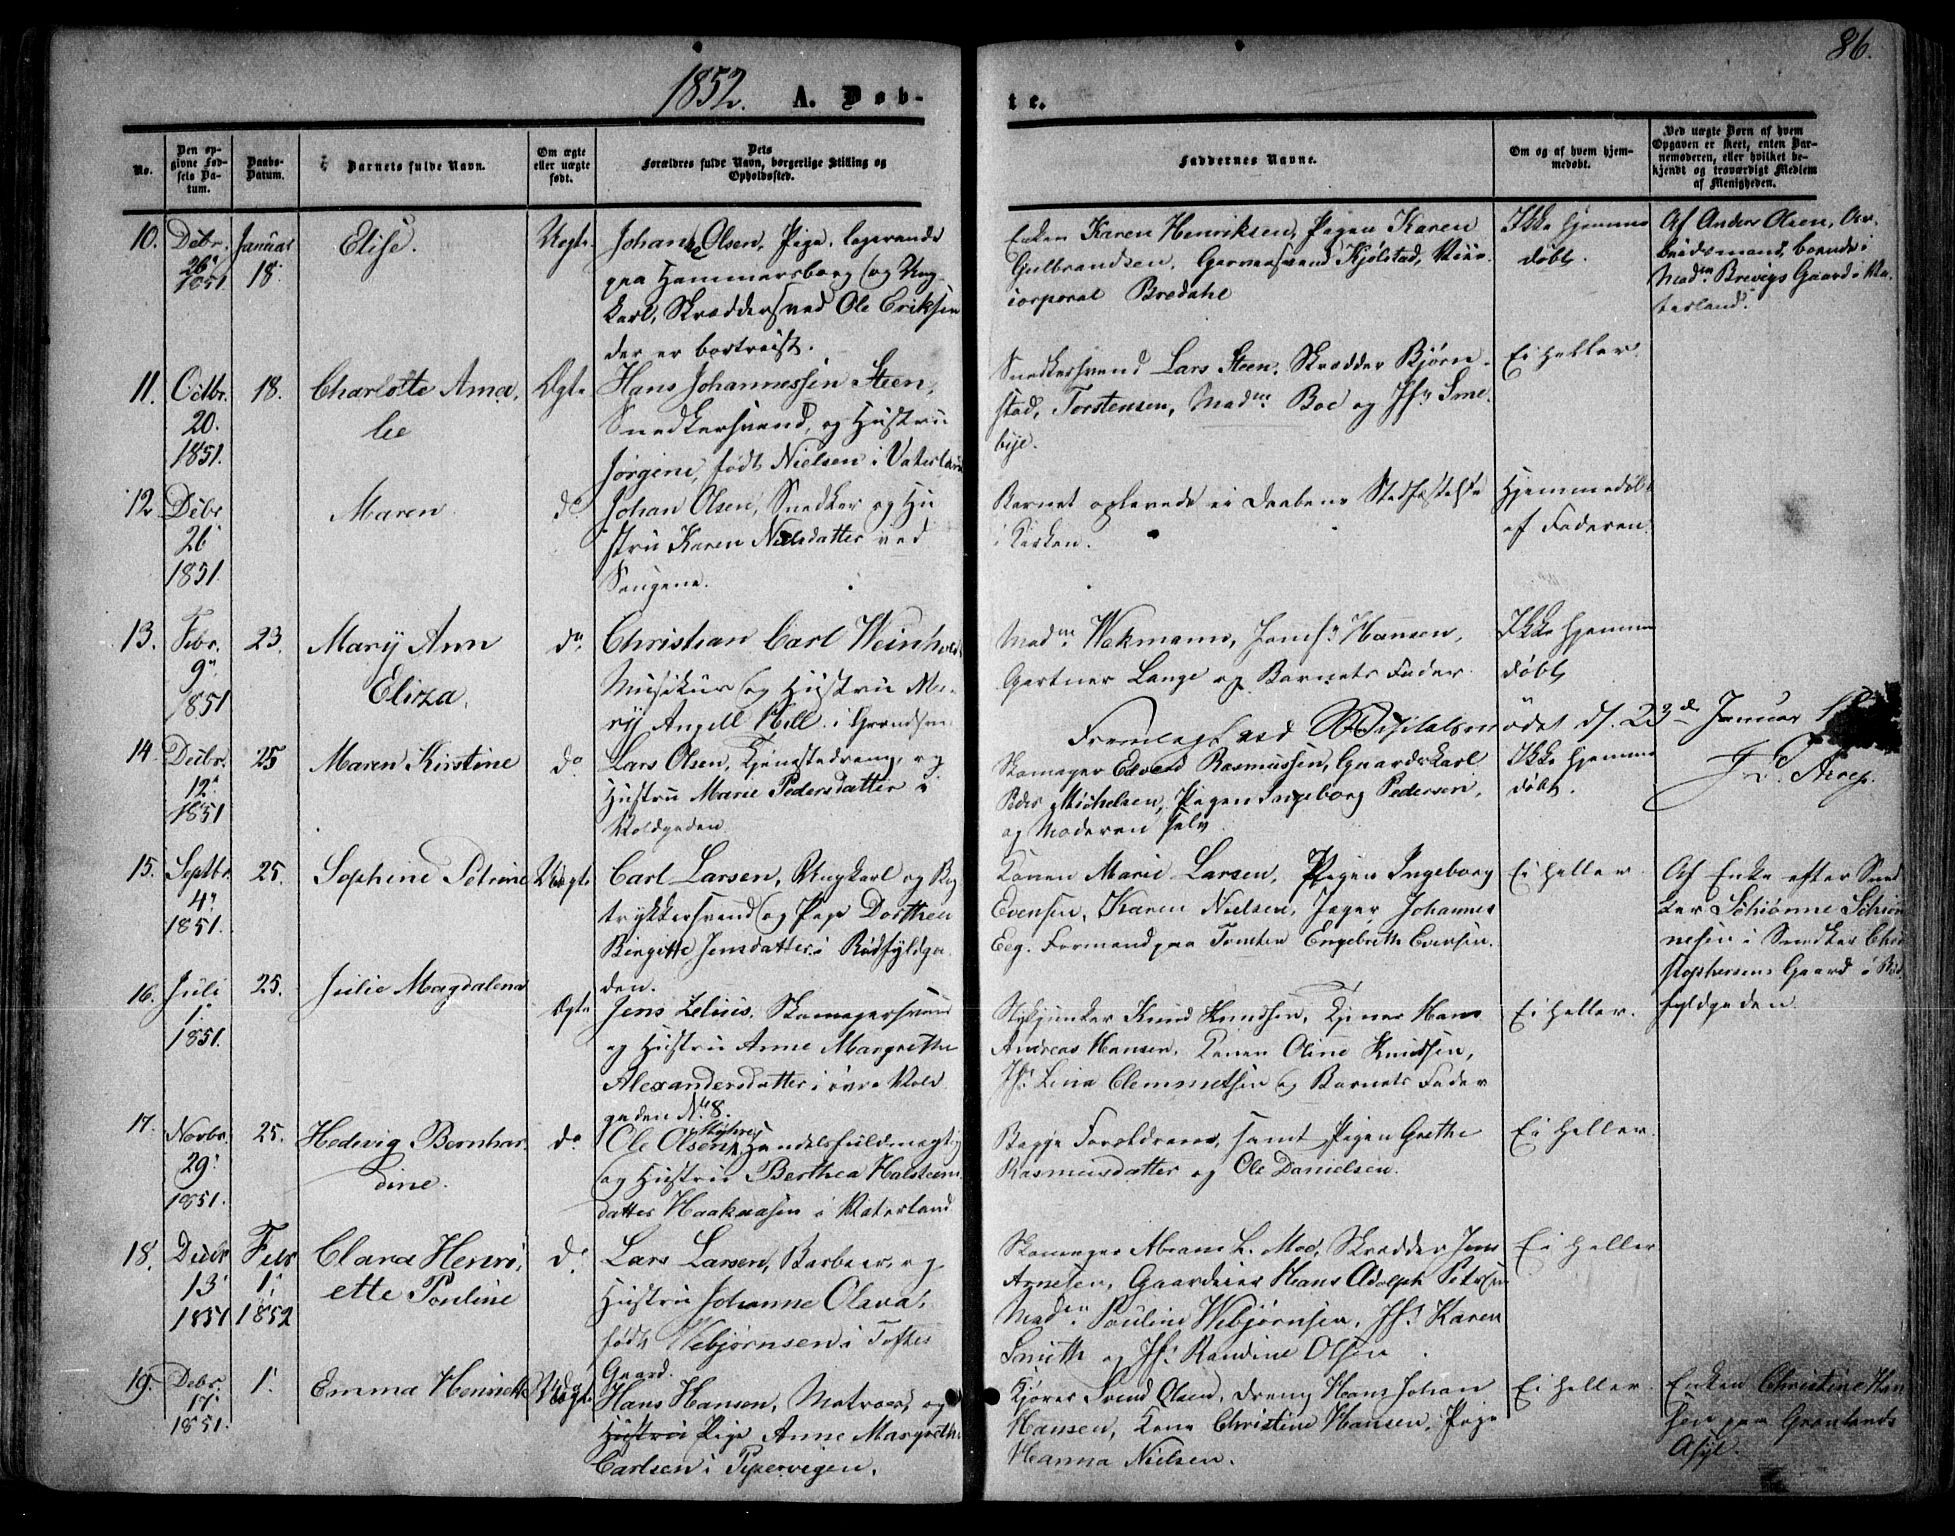 86.
1852. A. Døb-
te.
No.
Den op-
givne Fød-
sels Da-
tum.
Daabs-
Datum.
Barnets fulde Navn.
Om ægte
eller uægte
født.
Dets
Forældres fulde Navn, borgerlige Stilling og
Opholdssted.
Faddernes Navne.
Om og af hvem hjem-
medøbt.
Ved uægte Børn af hvem
Opgaven er skeet, enten Bar-
nemoderen, eller hvilket be-
kjendt og troværdigt Medlem
af Menigheden.
10.
Debr.
26
1851
Januar
18
Elise.
Uegte
Johanne Olsen, Pige, logerende
paa Hammersborg og Ung-
karl, Skræddersvend Ole Eriksen
der er bortreist.
Enken Karen Henriksen, Pigen Karen
Gulbrandsen, Garversvend Kjølstad,
corporal Bredahl
Ikke hjemme
døbt.
Af Anders Olsen, Ar-
beidsmand, boende i
Mad. Brevigs Gaard i Va-
terland.
11.
Octbr.
20.
1851.
18.
Charlotte Ama-
lie
Ægte
Hans Johannessen Steen,
Snedkersvend, og Hustru
Jørgine, født Nielsen i Vaterland
Snedkersvend Lars Steen, Skrædder Bjørn-
stad, Torstensen, Madme Boe og Jfr Sme-
bye.
Ei heller
12
Debr
26
1851.
Maren
do
Johan Olsen, Snedker og Hu
stru Karen Nielsdatter ved
Saugene.
Barnet oplevede ei Daabens Stadfæstelse
i Kirken.
Hjemmedøbt
af Faderen.
13.
Febr.
9
1851
23.
Mary Ann
Elirza.
do
Christian Carl Weinhold
Musikus og Hustru Ma-
ry Angell Hill i Grændsen
Madme Wekmann, Jomfr Hansen,
Gartner Lange og Barnets Fader.
Ikke hjemme
døbt
Fremlagt ved Bispedalsmødet d. 23de Januar
14.
Decbr.
12
1851
25
Maren Kirstine
do
Lars Olsen, Tjenestedreng, og
Hustru Marie Pedersdatter i
Voldgaden
Skomager Edvard Rasmussen, Gaardskarl
Peder Michelsen, Pigen Ingeborg Pedersen,
og Moderen selv
Ikke hjemme
døbt.
Arup.
15.
Septbr.
4
1851.
25.
Sophine Petrine
Uægte
Carl Larsen, Ungkarl og Bog
trykkersvend og Pige Dorthea
Birgitte Jensdatter i Rødfyldga-
den.
Konen Marie Larsen, Pigen Ingeborg
Evensen, Karen Nielsen, Jæger Johannes
Eeg. Formand paa Tomten Engebreth Evensen.
Ei heller
Af Enke efter Sned
ker Schiønne Schiøn
nesen i Snedker Chri
stophersens Gaard i Rød
fyldgaden
16.
Juli
1
1851.
25.
Julie Magdalena
Ægte
Jens Zelius, Skomagersvend
og Hustru Anne Margrethe
Alexandersdatter i øvre Vold
gaden No 8.
Stykjunker Knud Knudsen, Tjener Hans
Andreas Hansen, Konen Oline Knudsen,
Jfr Lina Clemmetsen og Barnets Fader
Ei heller.
17.
Novbr.
29
1851.
25.
Hedevig Bernhar-
dine.
do
Ole Olsen Myhre, Handelsfuldmægtig
og Hustru Berthea Halsteen
datter Haakaasen i Vaterland
Begge Forældrene, samt Pigen Grethe
Rasmusdatter og Ole Danielsen.
Ei heller.
18.
Decbr
13
1851
Febr
1.
1852
Clara Henri-
ette Pouline
do
Lars Larsen, Barbeer, og
Hustru Johanne Olava,
født Webjørnsen i Toftes
Gaard.
Skomager Abram L. Moe, Skrædder Jens
Arnesen, Gaardeier Hans Adolph Petersen
Mad. Pauline Webjørnsen, Jfr Karen
Smith og Jfr Randine Olsen.
Ei heller
19.
Debr.
17
1851.
1.
Emma Henriette
Uægte
Hans Hansen, Matros, og
Hustru Pige Anne Margrethe
Carlsen i Pipervigen.
Kjører Svend Olsen, Dreng Hans Johan
Hansen, Kone Christine Hansen, Pige
Hanna Nielsen.
Ei heller.
Enken Christine Han
sen paa Grønlands
Asyl.